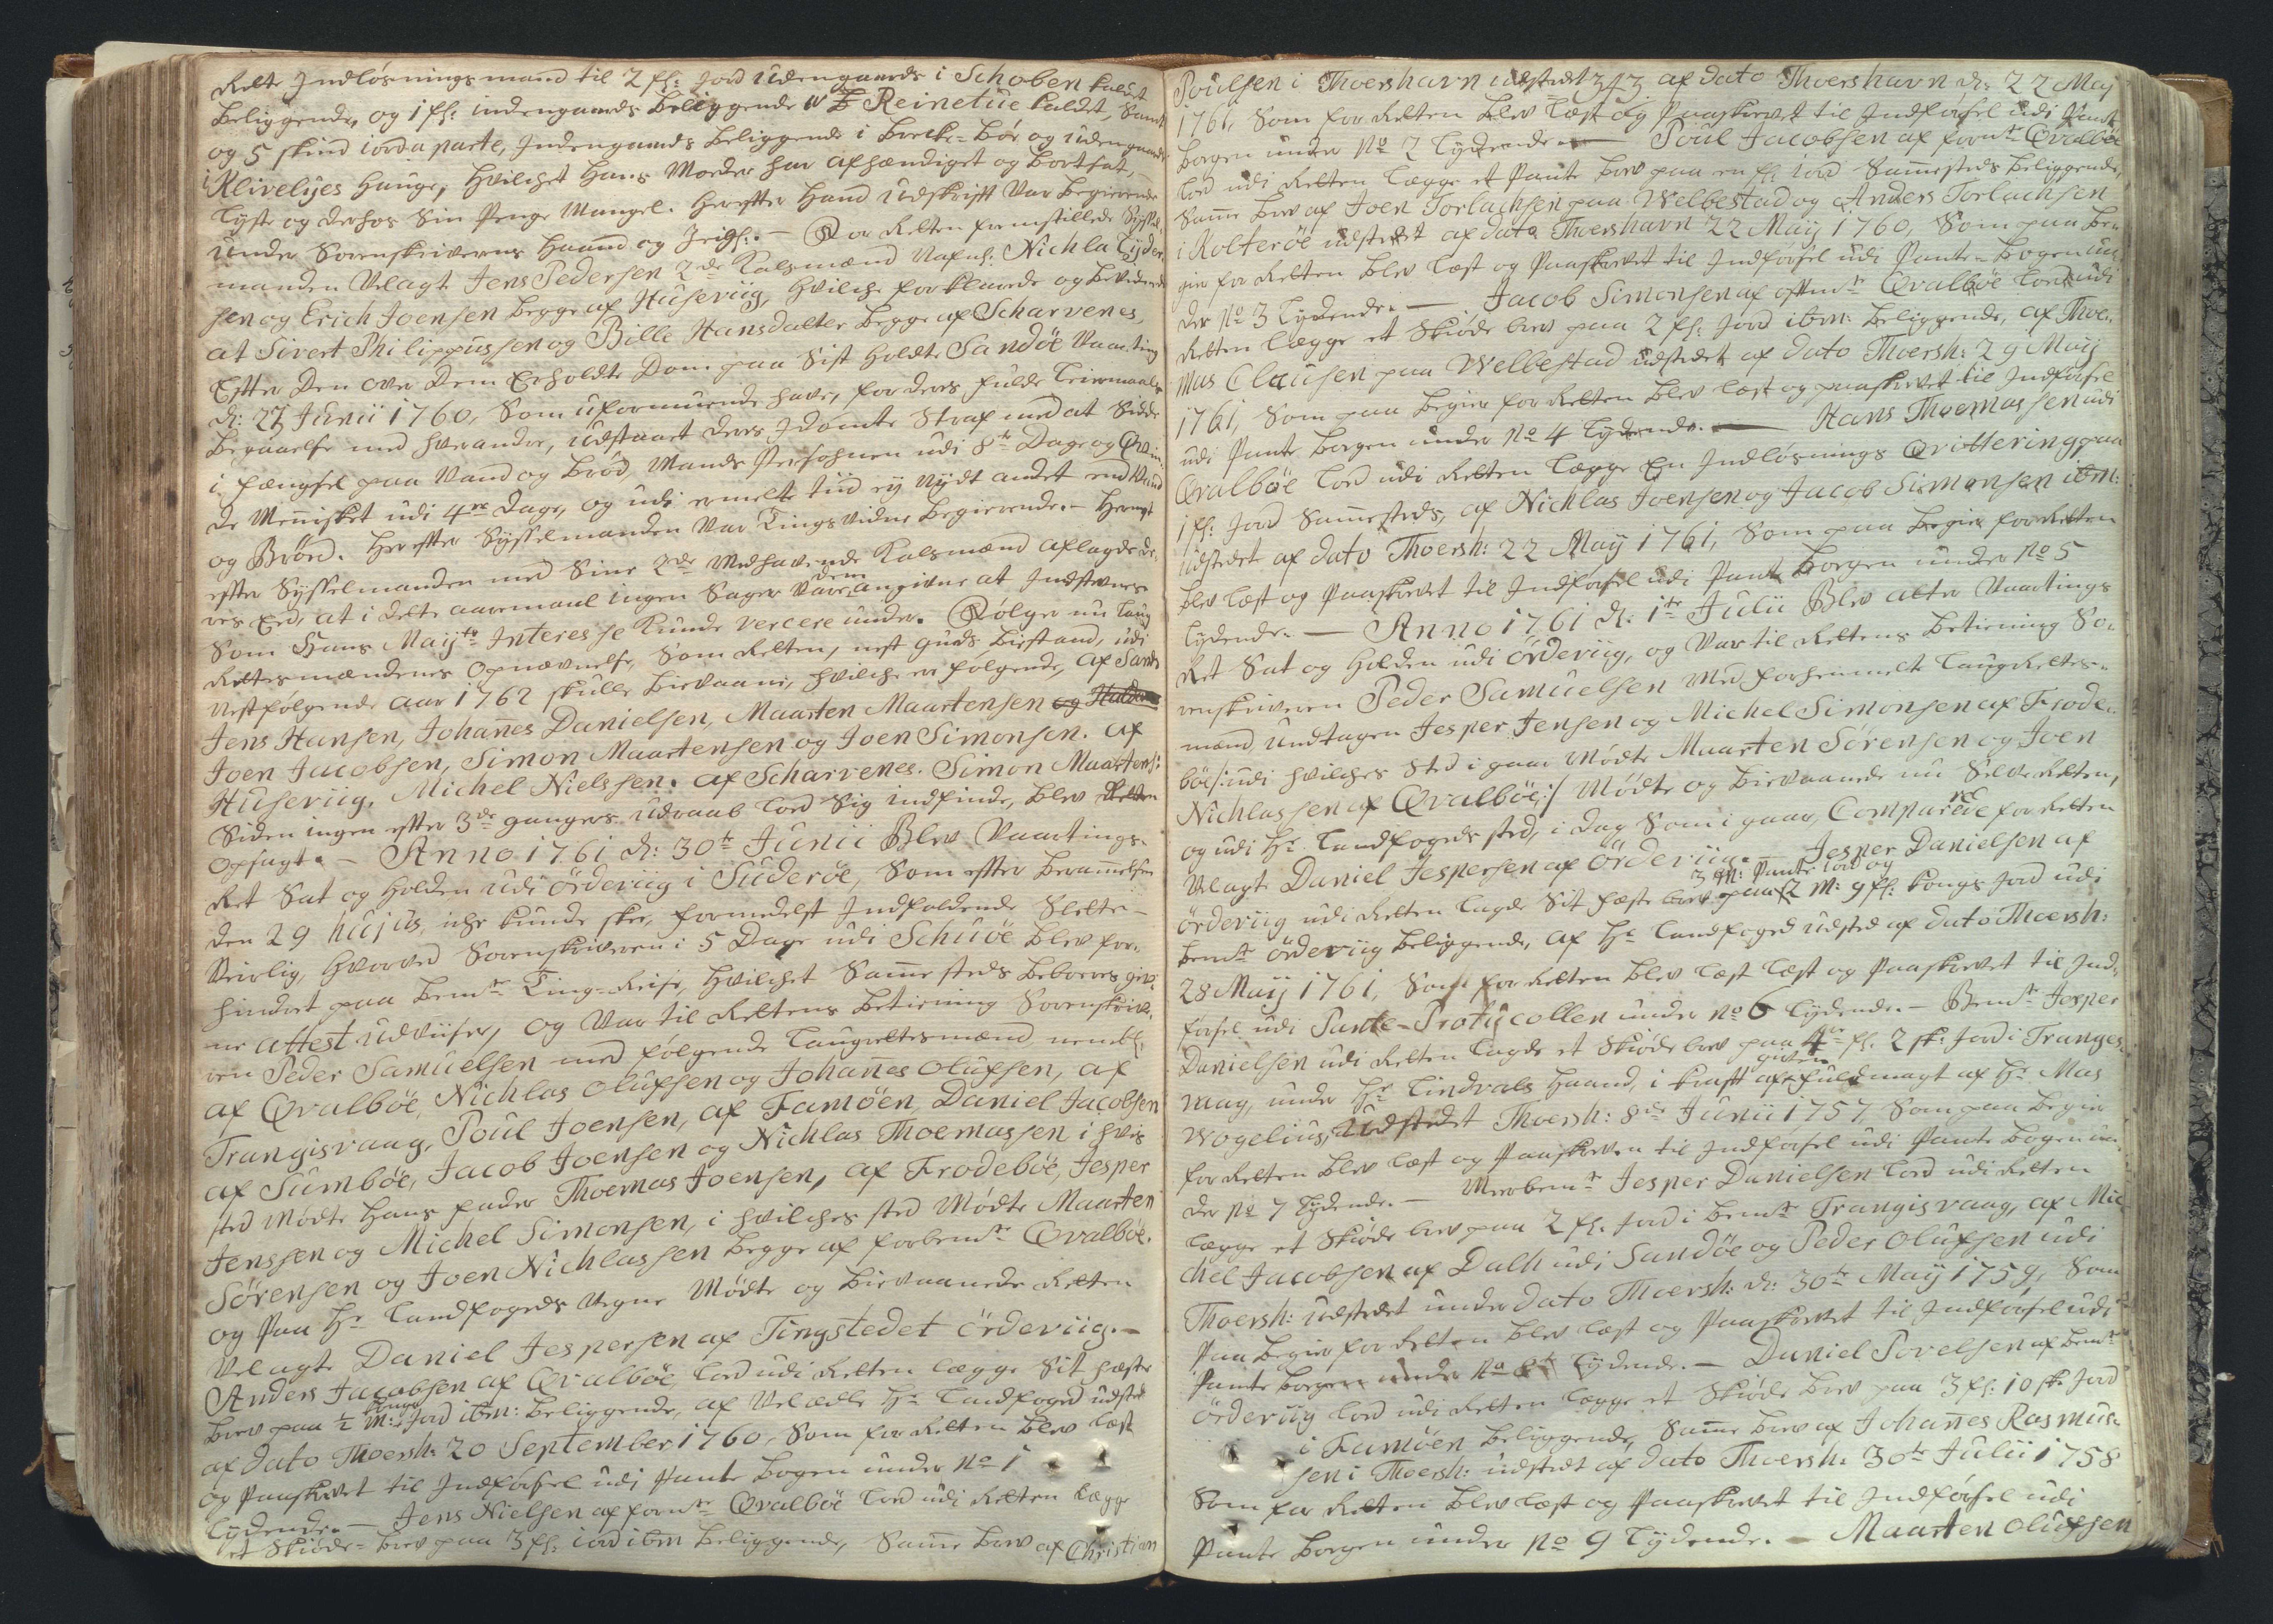 Rette Indløsningsmand til 2 fl: Jord Udengaards i Schoben kaldet
beliggende, og 1 fl: indengaards beliggende Reinetue kaldet, Samt
og 5 skind iord a parte, Indengaards beliggende i Breke-bøe og udengaards
i Klivelyes Hauge, hvilchet Hans Moeder har afhændiget og bortsat,
Lyste og derhos Sin Penge Mangel. Herefter Hand Udskrift Var begierende
under Sorenskriverens Haand og Zeigl:. — For Retten fremstillede Syssel-
manden Velagte Jens Pedersen 2de Kalsmænd Nafnl: Nichla Lyder-
sen og Erich Joensen begge af Huseviig, hvilche forklarede og bevidnede
at Sivert Philippussen og Bille Hansdatter begge af Scharvenes,
Efter Den over Dem Erholdte Dom paa Sist holdte Sandøe Vaarting
d: 27 Junii 1760, Som uformuende have, for deres fulde Leiermaals
begaaelse med hverandre, udstaaet deres Idømte Straf med at Sidde
i fængsel paa Vand og brød, Mands Persohnen udi 8te Dage og Qvin-
de Mennisket udi 4re Dage, og udi ermelte tiid ey nydt andet end Vand
og Brød. Herefter Sysselmanden Var Tingsvidne begierende. — Hernest
efter Sysselmanden med Sine 2de Medhavende Kalsmænd aflagde de-
res Eed, at i dette aaremaal ingen Sager Vare dem angivne at Indstevnes
Som Hans Mayts Interesse kunde vercere under. Følger nu Laug
Rettesmændenes Opnævnelse, Som Retten, nest Guds bistand, udi
nestfølgende aar 1762 skulle bievaane, hvilche er følgende, af Sand
Jens Hansen, Johannes Danielsen, Maarten Maartensen
Joen Jacobsen, Simon Maartensen og Joen Simonsen. af
Huseviig, Michel Nielssen. af Scharvenes. Simon Maartens:
Siden ingen efter 3de ganger udraab lod Sig indfinde, blev Retten
opsagt. — Anno 1761 d: 30te Junii Blev Vaartings-
Ret Sat og holden udi Ørdeviig i Suderøe, Som efter berammelsen
den 29 hujus, iche kunde skee, formedelst Indfaldende Slette-
Veirlig, hvorved Sorenskriveren i 5 Dage udi Schuøe blev for-
hindret paa bemte Ting-Reise, hvilchet Sammesteds beboeres giv-
ne Attest udviiser, og Var til Rettens betiening Sorenskriv-
eren Peder Samuelsen med følgende Laugrettesmænd nembl:
af Qvalbøe, Nichlas Olufsen og Johannes Olufsen, af
Trangisvaag, Poul Joensen, af Famøen, Daniel Jacobsen
af Sumbøe, Jacob Joensen og Nichlas Thoemassen i hvis
sted Mødte Hans fader Thoemas Joensen, af Frodebøe, Jesper
Jenssen og Michel Simonsen, i hvilches sted Mødte Maarten
Sørensen og Joen Nichlassen begge af forbemte Qvalbøe.
og paa Hr Landfogeds Vegne Mødte og bievaanede Retten
Velagte Daniel Jespersen af Tingstedet Ørdeviig. —
Anders Jacobsen af Qvalbøe lod udi Retten lægge Sit fæste
brev paa ½ M: Kongs Jord ibm: beliggende, af Velædle Hr Landfoged udsted
af Dato Thoersh: 20 September 1760, Som for Retten blev læst
og Paaskrevet til Indførsel udi Pante bogen under No 1
lydende. — Jens Nielsen af formte Qvalbøe lod udi Retten lægge
et Skiøde-brev paa 3 fl: iord ibm beliggende, Samme brev af Christian
Poulsen i Thoershavn udstedt af dato Thoershavn d: 22 May
1761, Som for Retten blev læst og Paaskrevet til Indførsel udi Pante
bogen under No 2 lydende. — Poul Jacobsen af formte Qvalbøe
lod udi Retten lægge et Pante brev paa en fl: iord Sammesteds beliggende,
Samme brev af Joen Torlachsen paa Welbestad og Anders Torlachsen
i Kolterøe udstedet af dato Thoershavn 22 May 1760, Som paa be-
gier for Retten blev læst og Paaskrevet til Indførsel udi Pante-bogen un-
der No 3 lydende. — Jacob Simonsen af oftmte Qvalbøe lod udi
Retten lægge et Skiøde brev paa 2 fl: Jord ibm: beliggende, af Thoe-
mas Clausen paa Welbestad udstedet af dato Thoersh: 29 May
1761, Som paa begier for Retten blev læst og paaskrevet til Indførsel
udi Pante bogen under No 4 lydende. — Hans Thoemassen udi
Qvalbøe lod udi Retten lægge En Indløsnings Qvittering paa
1 fl: Jord Sammesteds, af Nichlas Joensen og Jacob Simonsen ibm:
udstedet af dato Thoersh: 22 May 1761, Som paa begier for Retten
blev læst og Paaskrevet til Indførsel udi Pante bogen under No 5
lydende. — Anno 1761 d: 1te Julii Blev atter Vaartings
Ret Sat og holden udi Ørdeviig, og Var til Rettens betiening So-
renskriveren Peder Samuelsen Med forhenmelte Laug Rettes-
mænd, undtagen Jesper Jensen og Michel Simonsen af Frode-
bøe /: udi hvilches sted i gaar Mødte Maarten Sørensen og Joen
Nichlassen af Qvalbøe :/ Mødte og bievaanede nu Selv Retten,
og udi Hr Landfogeds sted, i Dag Som i gaar, Comparerede for Retten
Velagte Daniel Jespersen af Ørdeviig. — Jesper Danielsen af
Ørdeviig udi Retten lagde Sit fæste brev paa 3 M: Pante iord og 2 M: 9 fl: Kongs Jord udi
bemte Ørdeviig beliggende, af Hr Landfoged udsted af dato Thoersh:
28 May 1761, Som for Retten blev læst læst og Paaskrevet til Ind-
førsel udi Pante-Protycollen under No 6 lydende. — Bemte Jesper
Danielsen udi Retten lagde et Skiøde brev paa 4re fl. 2 sk: Jord i Tranges-
vaag, under Hr Lindvals Haand, i kraft af given fuldmagt af Hr Mas
Wogelius, Udstedet Thoersh: 8de Junii 1757, Som paa begier
for Retten blev læst og Paaskreven til Indførsel udi Pante bogen un-
der No 7 lydende. — Meerbemte Jesper Danielsen lod udi Retten
lægge et Skiøde brev paa 2 fl. Jord i bemte Trangisvaag, af Mic-
chel Jacobsen af Dalh udi Sandøe og Peder Olufsen udi
Thoersh: udstedet under dato Thoersh: d: 30te May 1759, Som
paa begier for Retten blev læst og Paaskrevet til Indførsel udi
Pante bogen under No 8 lydende. — Daniel Povelsen af bemte
Ørdeviig lod udi Retten lægge et Skiøde brev paa 3 fl: 10 sk: Jord
i Famøen beliggende, Samme brev af Johannes Rasmus-
sen i Thoersh: udstedt af dato Thoersh: 30te Julii 1758
Som for Retten blev læst og Paaskrevet til Indførsel udi
Pante bogen under No 9 lydende. — Maarten Olufsen